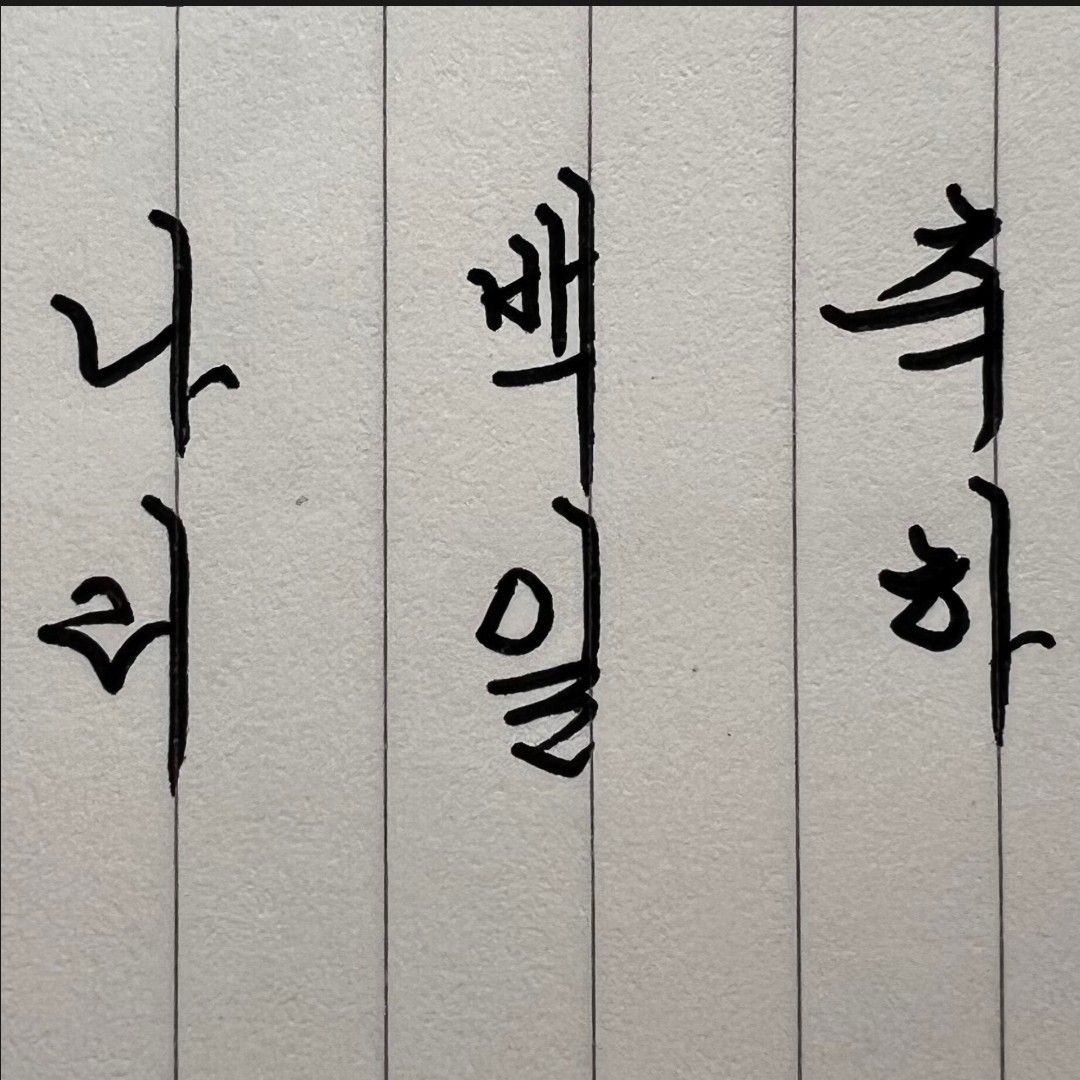 나리
백일
축하